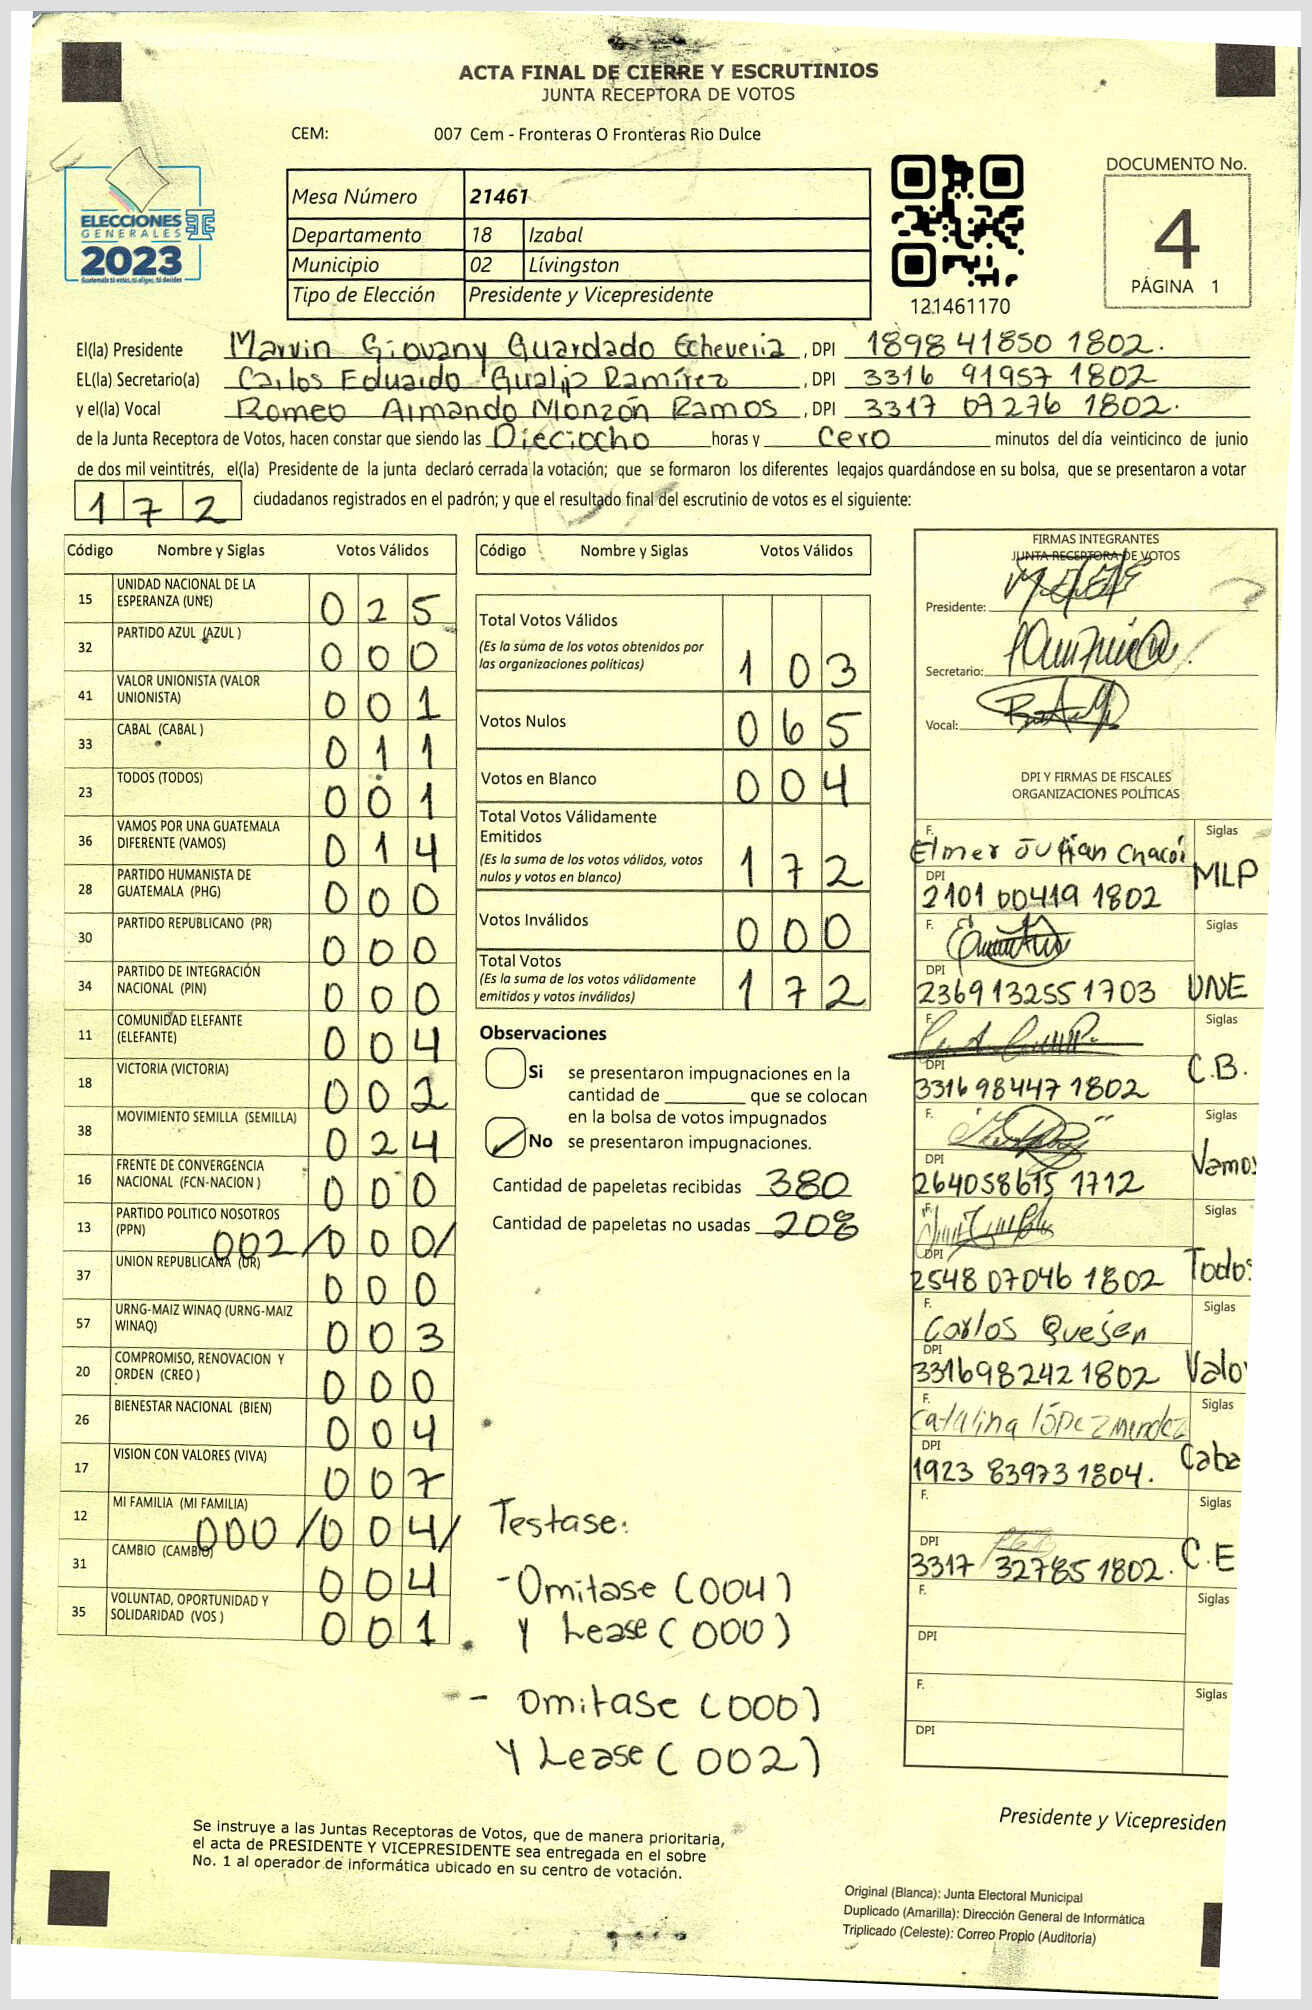 ACTA FINAL DE CIERRE Y ESCRUTINIOS
JUNTA RECEPTORA DE VOTOS
CEM: 007 Cem - Fronteras O Fronteras Rio Dulce
ELECCIONES
GENERALES
2023
Guatemala tú votas, tú eliges, tú decides
Mesa Número 21461
Departamento 18 Izabal
Municipio 02 Lívingston
Tipo de Elección Presidente y Vicepresidente
121461170
DOCUMENTO No.
4
PÁGINA 1
El(la) Presidente Marvin Giovany Guardado Echeveria , DPI 1898 41850 1802.
EL(la) Secretario(a) Carlos Eduardo Gualip Ramírez , DPI 3316 91957 1802
y el(la) Vocal Romeo Armando Monzón Ramos , DPI 3317 07276 1802.
de la Junta Receptora de Votos, hacen constar que siendo las Dieciocho horas y Cero minutos del día veinticinco de junio
de dos mil veintitrés, el(la) Presidente de la junta declaró cerrada la votación; que se formaron los diferentes legajos quardándose en su bolsa, que se presentaron a votar
172 ciudadanos registrados en el padrón; y que el resultado final del escrutinio de votos es el siguiente:
Código Nombre y Siglas Votos Válidos
15 UNIDAD NACIONAL DE LA ESPERANZA (UNE) 025
32 PARTIDO AZUL (AZUL ) 000
41 VALOR UNIONISTA (VALOR UNIONISTA) 001
33 CABAL (CABAL ) 011
23 TODOS (TODOS) 001
36 VAMOS POR UNA GUATEMALA DIFERENTE (VAMOS) 014
28 PARTIDO HUMANISTA DE GUATEMALA (PHG) 000
30 PARTIDO REPUBLICANO (PR) 000
34 PARTIDO DE INTEGRACIÓN NACIONAL (PIN) 000
11 COMUNIDAD ELEFANTE (ELEFANTE) 004
18 VICTORIA (VICTORIA) 002
38 MOVIMIENTO SEMILLA (SEMILLA) 024
16 FRENTE DE CONVERGENCIA NACIONAL (FCN-NACION ) 000
13 PARTIDO POLITICO NOSOTROS (PPN) 002/000/
37 UNION REPUBLICANA (UR) 000
57 URNG-MAIZ WINAQ (URNG-MAIZ WINAQ) 003
20 COMPROMISO, RENOVACION Y ORDEN (CREO ) 000
26 BIENESTAR NACIONAL (BIEN) 004
17 VISION CON VALORES (VIVA) 007
12 MI FAMILIA (MI FAMILIA) 000/004/
31 CAMBIO (CAMBIO) 004
35 VOLUNTAD, OPORTUNIDAD Y SOLIDARIDAD (VOS ) 001
Código Nombre y Siglas Votos Válidos
Total Votos Válidos
(Es la suma de los votos obtenidos por
las organizaciones políticas) 103
Votos Nulos 065
Votos en Blanco 004
Total Votos Válidamente
Emitidos
(Es la suma de los votos válidos, votos
nulos y votos en blanco) 172
Votos Inválidos 000
Total Votos
(Es la suma de los votos válidamente
emitidos y votos inválidos) 172
Observaciones
Si se presentaron impugnaciones en la
cantidad de ________ que se colocan
en la bolsa de votos impugnados
No se presentaron impugnaciones.
Cantidad de papeletas recibidas 380
Cantidad de papeletas no usadas 208
Testase:
- Omitase (004)
Y Lease (000)
- Omitase (000)
Y Lease (002)
FIRMAS INTEGRANTES
JUNTA RECEPTORA DE VOTOS
Presidente:
Secretario:
Vocal:
DPI Y FIRMAS DE FISCALES
ORGANIZACIONES POLÍTICAS
F. Siglas
Elmer Julian Chacón
DPI MLP
2101 00419 1802
F. Siglas
DPI
2369132551703 UNE
F. Siglas
DPI C.B.
3316 98447 1802
F. Siglas
DPI Vamos
264058615 1712
F. Siglas
DPI
2548 07046 1802 Todos
F. Siglas
Carlos Quejen
DPI
3316982421802 Valo
F. Siglas
Catalina López Mendez
DPI Caba
1923 83973 1804.
F. Siglas
DPI
3317 32785 1802. C.E
F. Siglas
DPI
F. Siglas
DPI
Presidente y Vicepresiden
Se instruye a las Juntas Receptoras de Votos, que de manera prioritaria,
el acta de PRESIDENTE Y VICEPRESIDENTE sea entregada en el sobre
No. 1 al operador de informática ubicado en su centro de votación.
Original (Blanca): Junta Electoral Municipal
Duplicado (Amarilla): Dirección General de Informática
Triplicado (Celeste): Correo Propio (Auditoria)